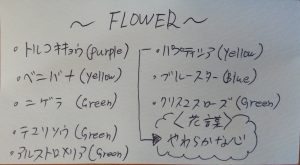 ~ FLOWER ~
・トルコキキョウ(purple)
・ベニバナ(Yellow)
・ニゲラ(Green)
・テマリソウ(Green)
・アルストロメリア(Green)
(Yellow)
・ブルースター(Blue)
・クリスマスローズ(Green)
<花言葉>
やわらかな心